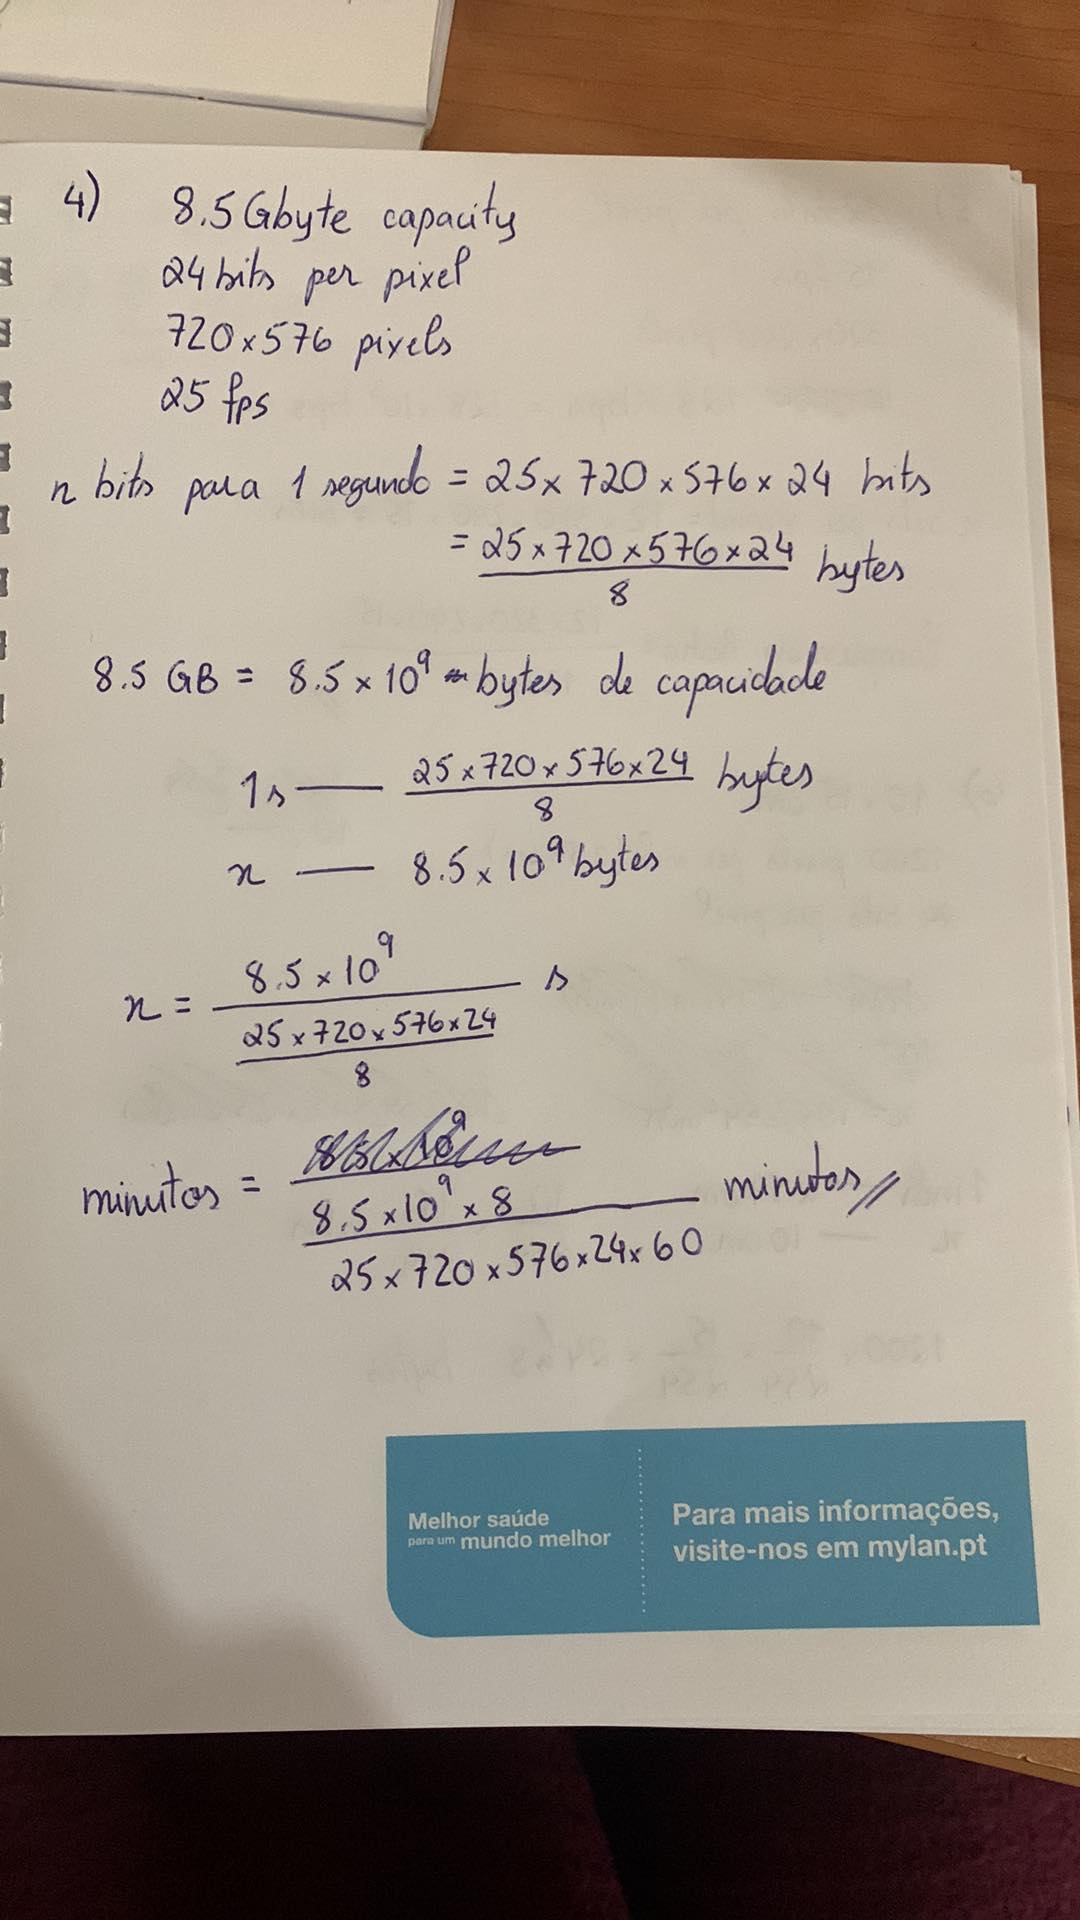 4) 8.5 Gbyte capacity
24 bits per pixel
720 x 576 pixels
25 fps
n bits para 1 segundo = 25 x 720 x 576 x 24 bits
= 25 x 720 x 576 x 24 / 8 bytes
8.5 GB = 8.5 x 10^9 bytes de capacidade
1s — 25 x 720 x 576 x 24 / 8 bytes
x — 8.5 x 10^9 bytes
x = 8.5 x 10^9 / (25 x 720 x 576 x 24 / 8) s
minutos = 8.5 x 10^9 x 8 / 25 x 720 x 576 x 24 x 60 minutos //
Melhor saúde
para um mundo melhor
Para mais informações,
visite-nos em mylan.pt